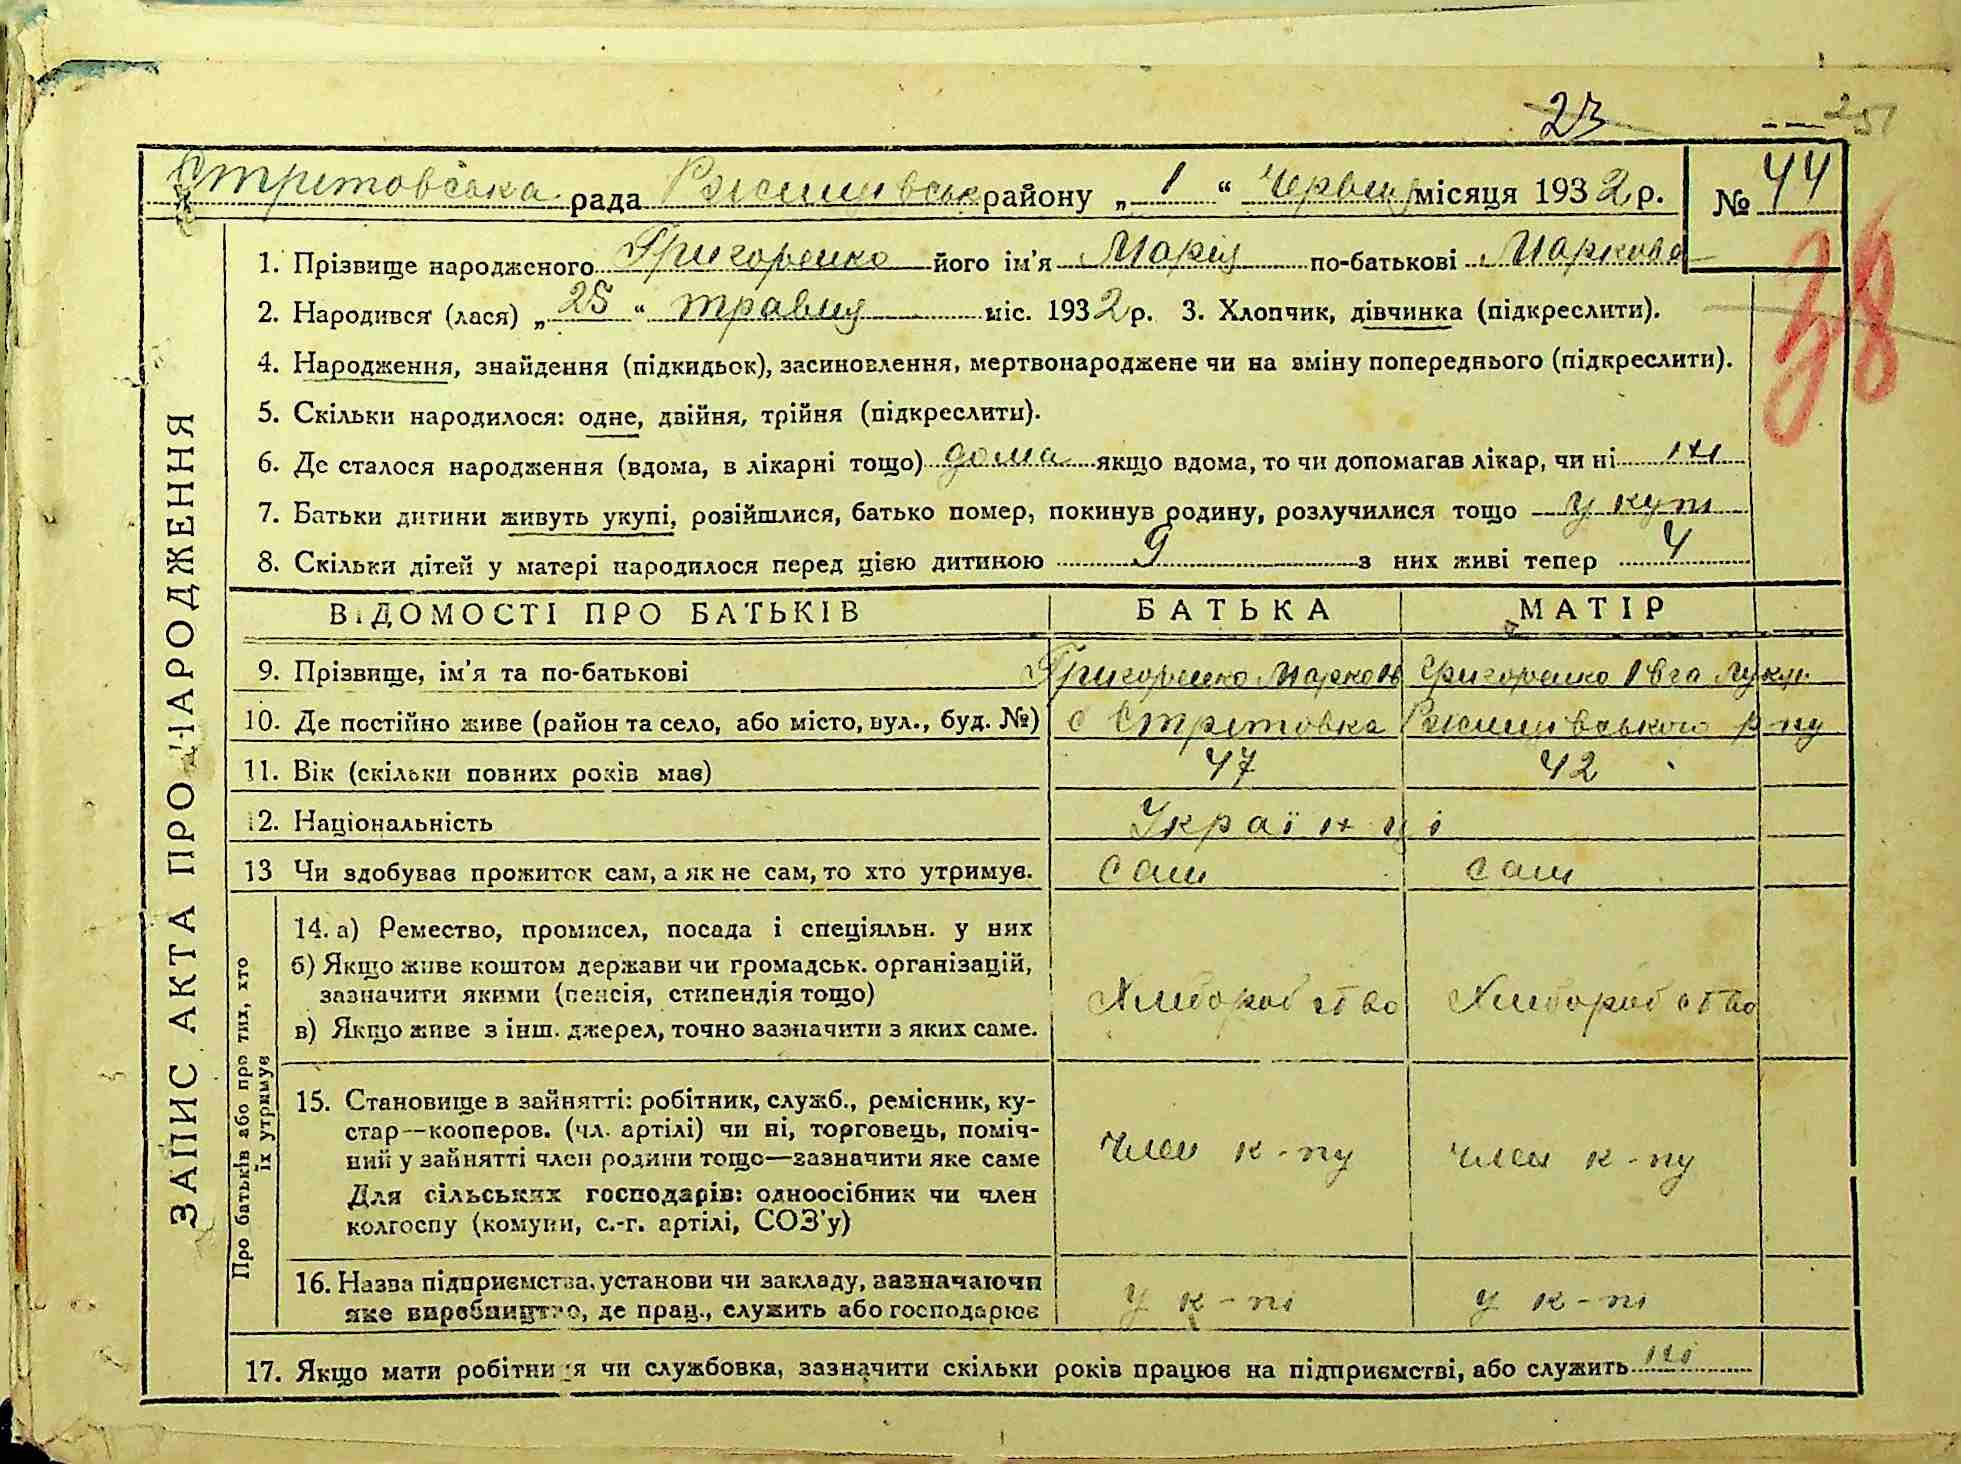 23 25
Стрітовська рада Ржищівськ району „ 1 “ Червня місяця 1932 р. № 44
38
ЗАПИС АКТА ПРО НАРОДЖЕННЯ
1. Прізвище народженого Григоренко його ім'я Марія по-батькові Маркова
2. Народився (лася) „ 25 “ травня міс. 1932 р. 3. Хлопчик, дівчинка (підкреслити).
4. Народження, знайдення (підкидьок), засиновлення, мертвонароджене чи на зміну попереднього (підкреслити).
5. Скільки народилося: одне, двійня, трійня (підкреслити).
6. Де сталося народження (вдома, в лікарні тощо) дома якщо вдома, то чи допомагав лікар, чи ні ні
7. Батьки дитини живуть укупі, розійшлися, батько помер, покинув родину, розлучилися тощо у купі
8. Скільки дітей у матері народилося перед цією дитиною 9 з них живі тепер 4
ВІДОМОСТІ ПРО БАТЬКІВ БАТЬКА МАТІР
9. Прізвище, ім'я та по-батькові Григоренко Марко Григоренко Івга
10. Де постійно живе (район та село, або місто, вул., буд. №) с Стрітовка Ржищівського р-ну
11. Вік (скільки повних років має) 47 42
12. Національність Українці
13 Чи здобуває прожиток сам, а як не сам, то хто утримує. сам сам
Про батьків або про тих, хто
їх утримує
14. а) Ремество, промисел, посада і спеціяльн. у них
б) Якщо живе коштом держави чи громадськ. організацій,
зазначити якими (пенсія, стипендія тощо)
в) Якщо живе з інш. джерел, точно зазначити з яких саме.
Хліборобство Хліборобство
15. Становище в зайнятті: робітник, служб., ремісник, ку-
стар—кооперов. (чл. артілі) чи ні, торговець, поміч-
ний у зайнятті член родини тощо—зазначити яке саме
Для сільських господарів: одноосібник чи член
колгоспу (комуни, с.-г. артілі, СОЗ'у)
член к-пу член к-пу
16. Назва підприємства, установи чи закладу, зазначаючи
яке виробництво, де прац., служить або господарює
у к-пі у к-пі
17. Якщо мати робітниця чи службовка, зазначити скільки років працює на підприємстві, або служить ні